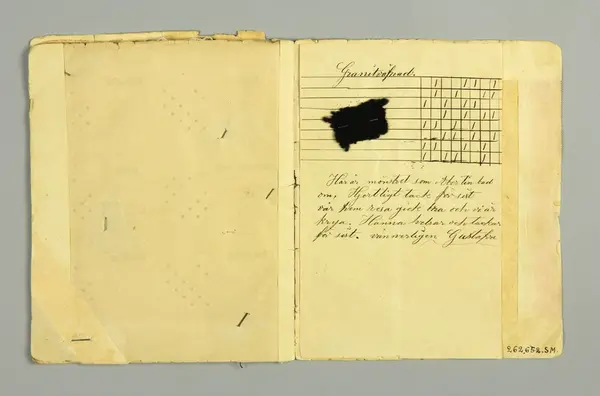 Granitväfnad.
Här är mönstret som Morten bad
om, Hjärtligt tack för sist
vår hem resa gick bra och vi är
krya. Hanna helsar och tackar
för sist. vänverligen Gustafva
262,652.S.M.